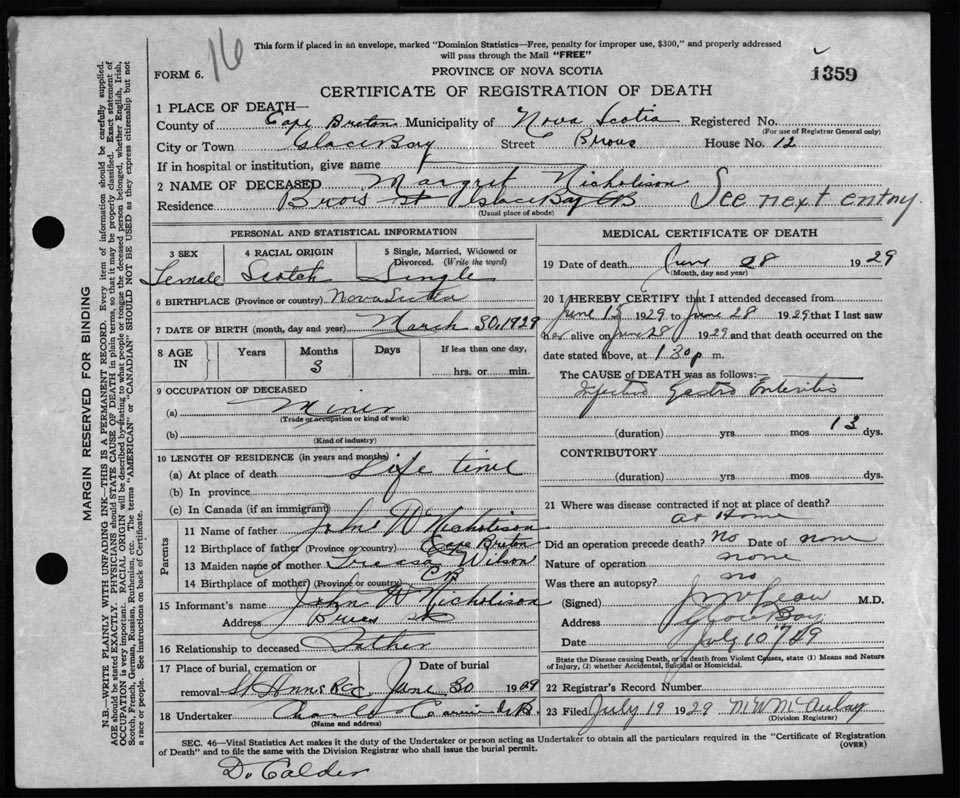 16
This form if placed in an envelope, marked "Dominion Statistics—Free, penalty for improper use, $300," and properly addressed
will pass through the Mail "FREE"
FORM 6.
PROVINCE OF NOVA SCOTIA
1359
CERTIFICATE OF REGISTRATION OF DEATH
1 PLACE OF DEATH—
County of Cape Breton Municipality of Nova Scotia Registered No.
(For use of Registrar General only)
City or Town Glace Bay Street House No. 12
If in hospital or institution, give name
2 NAME OF DECEASED Margret Nicholison
See next entry.
Residence St Glace Bay CB
(Usual place of abode)
PERSONAL AND STATISTICAL INFORMATION
3 SEX
4 RACIAL ORIGIN
5 Single, Married, Widowed or
Divorced. (Write the word)
Female Scotch Single
6 BIRTHPLACE (Province or country) Nova Scotia
7 DATE OF BIRTH (month, day and year) March 30, 1929
8 AGE IN
Years Months Days If less than one day,
3
hrs. or min.
9 OCCUPATION OF DECEASED
(a) Miner
(Trade or occupation or kind of work)
(b)
(Kind of industry)
10 LENGTH OF RESIDENCE (in years and months)
(a) At place of death Life time
(b) In province
(c) In Canada (if an immigrant)
Parents
11 Name of father John W Nicholison
12 Birthplace of father (Province or country) Cape Briton
13 Maiden name of mother Wilson
14 Birthplace of mother (Province or country) CB
15 Informant's name John W Nicholison
Address St
16 Relationship to deceased Father
17 Place of burial, cremation or
Date of burial
removal St Anns RCC June 30 1929
18 Undertaker Charles
(Name and address)
MEDICAL CERTIFICATE OF DEATH
19 Date of death June 28 1929
(Month, day and year)
20 I HEREBY CERTIFY that I attended deceased from
June 15 1929 to June 28 1929 that I last saw
her alive on June 28 1929 and that death occurred on the
date stated above, at 1.30 p m.
The CAUSE OF DEATH was as follows:—
Infectius Gastro Enteritis
(duration) yrs mos 13 dys.
CONTRIBUTORY
(duration) yrs mos dys.
21 Where was disease contracted if not at place of death?
at Home
Did an operation precede death? No Date of none
Nature of operation none
Was there an autopsy? no
(Signed) M.D.
Address Glace Bay
Date July 10
State the Disease causing Death, or in death from Violent Causes, state (1) Means and Nature
of Injury, (2) whether Accidental, Suicidal or Homicidal.
22 Registrar's Record Number
23 Filed July 19 1929 M W McAulay
(Division Registrar)
SEC. 46—Vital Statistics Act makes it the duty of the Undertaker or person acting as Undertaker to obtain all the particulars required in the "Certificate of Registration
of Death" and to file the same with the Division Registrar who shall issue the burial permit.
(OVER)
Dr Calder
MARGIN RESERVED FOR BINDING
N.B.—WRITE PLAINLY WITH UNFADING INK—THIS IS A PERMANENT RECORD. Every item of information should be carefully supplied.
AGE should be stated EXACTLY. PHYSICIANS should STATE CAUSE OF DEATH in plain terms, so that it may be properly classified. Exact statement of
OCCUPATION is very important. RACIAL ORIGIN will be described by stating to what people or tongue the deceased person belonged, whether English, Irish,
Scotch, French, German, Russian, Ruthenian, etc. The terms "AMERICAN" or "CANADIAN" SHOULD NOT BE USED as they express citizenship but not
a race or people. See instructions on back of Certificate.